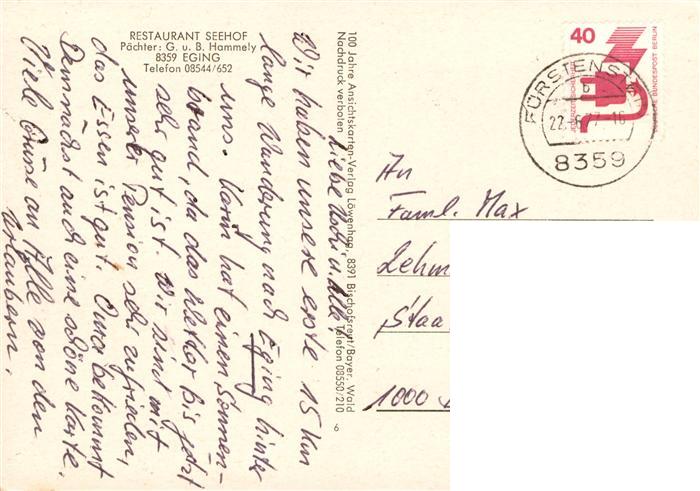 RESTAURANT SEEHOF
Pächter: G. u. B. Hammely
8359 EGING
Telefon 08544/652
100 Jahre Ansichtskarten-Verlag Löwenhag., 8391 Bischofsreut/Bayer. Wald
Nachdruck verboten Telefon 08550/210
6
Liebe u. Alle,
Wir haben unsere erste 15 km
lange Wanderung nach Eging hinter
uns. Karin hat einen Sonnen-
brand, da das Wetter bis jetzt
sehr gut ist. Wir sind mit
unserer Pension sehr zufrieden,
das Essen ist gut. Ihr bekommt
Demnächst auch eine schöne Karte.
Viele Grüße an Alle von den
Urlaubern.
40
DEUTSCHE BUNDESPOST BERLIN
FÜRSTENSTEIN
b
22.-6.77-16
8359
An
Faml. Max
Lehm
Staa
1000